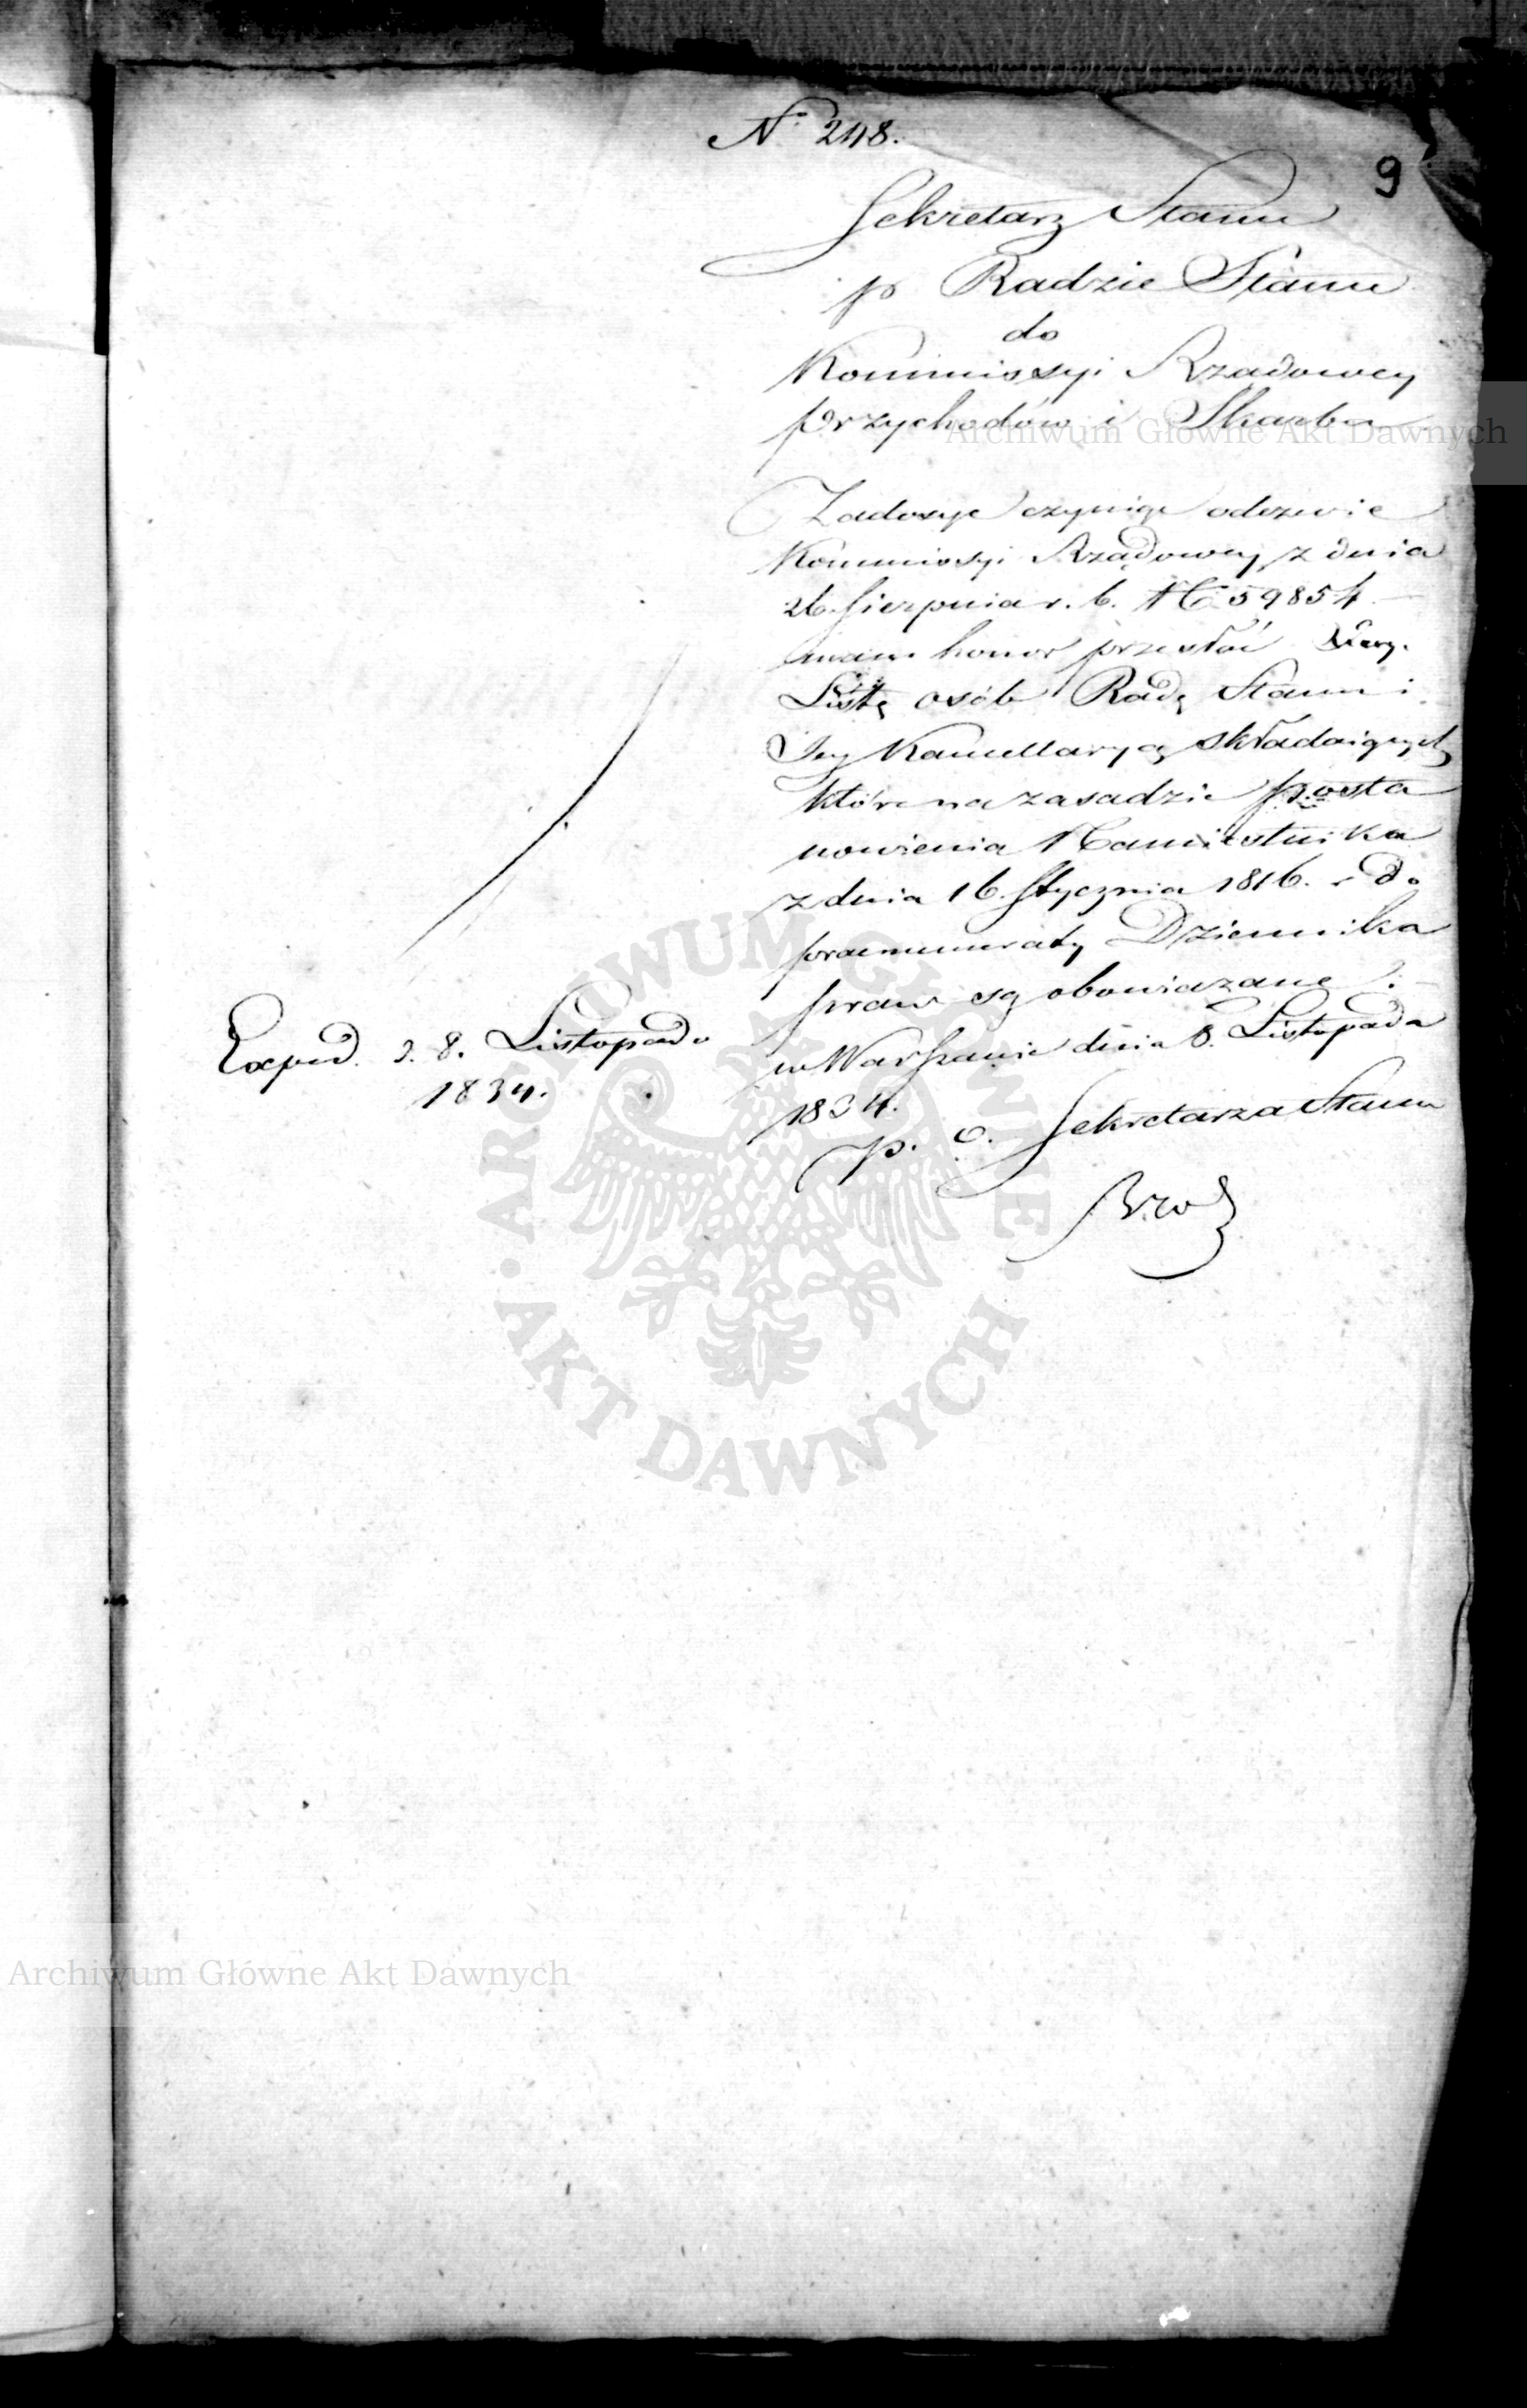 N° 248.
9
Sekretarz Stanu
p Radzie Stanu
do
Kommissyi Rządowey
Przychodów i Skarbu
Zadosyc czyniąc odezwie
Kommissyi Rządowey z dnia
26. Sierpnia r. b. N 59854
mam honor przesłać
Listę osób Radę Stanu i
Jey Kancellaryą składaiących
które na zasadzie posta
nowienia Namiestnika
z dnia 16. Stycznia 1816. r do
praenumeraty Dziennika
praw są obowiązane.
w Warszawie dnia 8. Listopada
1834.
p. o. Sekretarza Stanu
Exped. d. 8. Listopada
1834.
Archiwum Główne Akt Dawnych
ARCHIWUM GŁÓWNE AKT DAWNYCH
Archiwum Główne Akt Dawnych